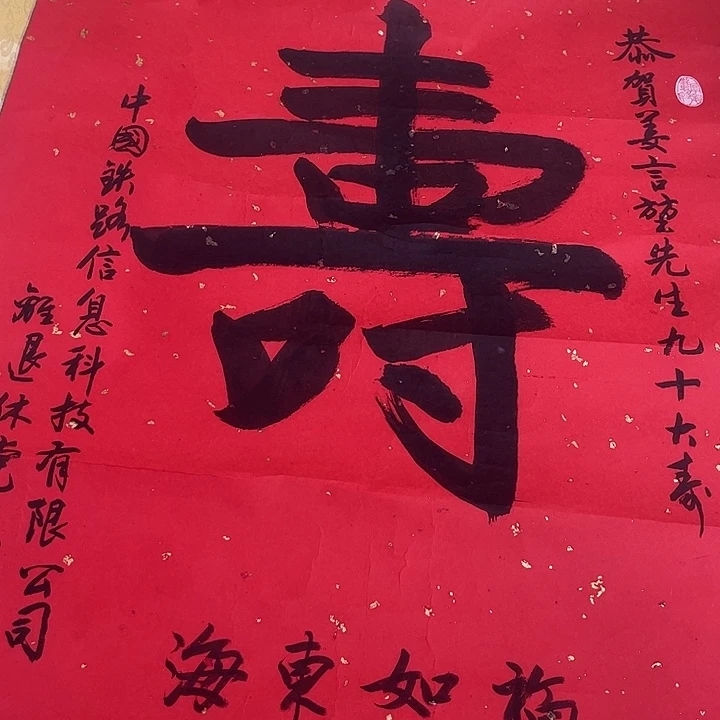 恭賀姜言蓮先生九十大寿
壽
福如東海
中國铁路信息科技有限公司
離退休党